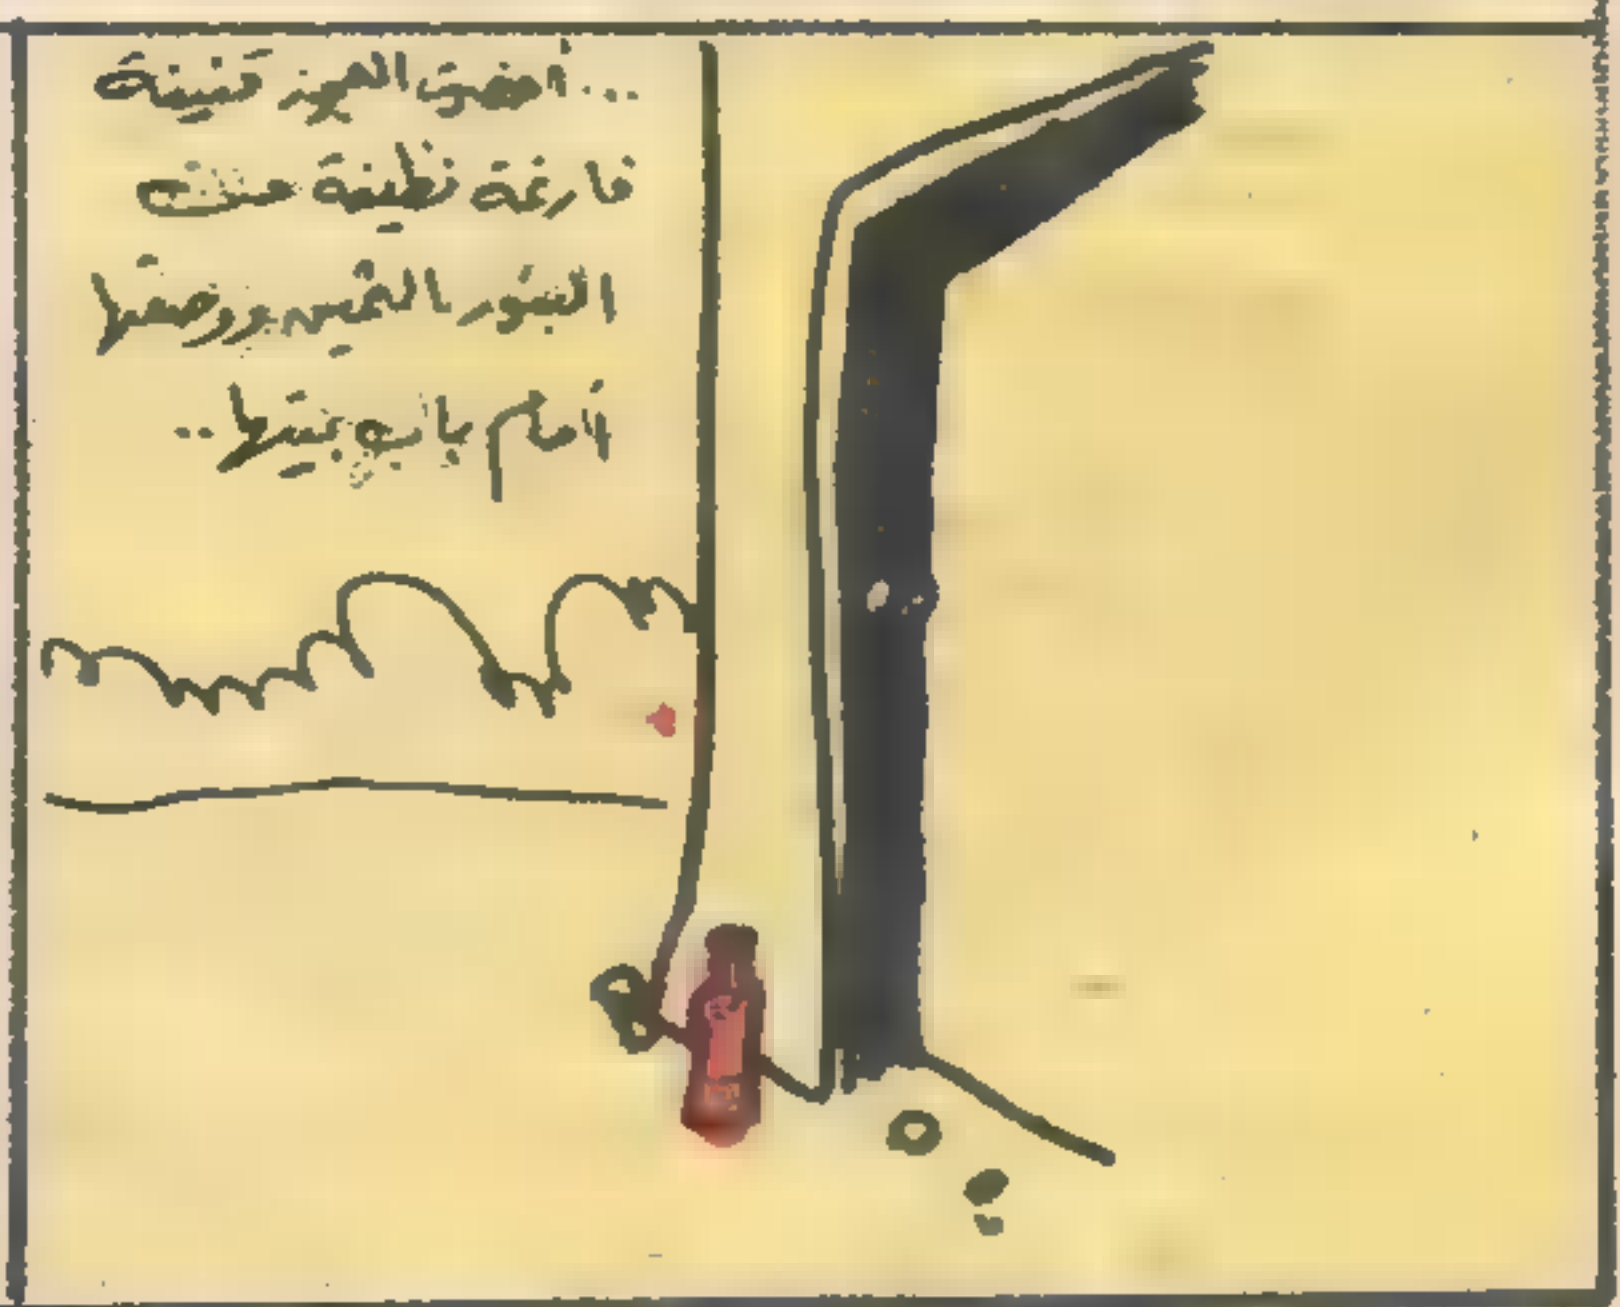 ...أحضرت العجوز قنينة
فارغة نظيفة من
البنور النفيس ووضعتها
أمام باب بيتها..